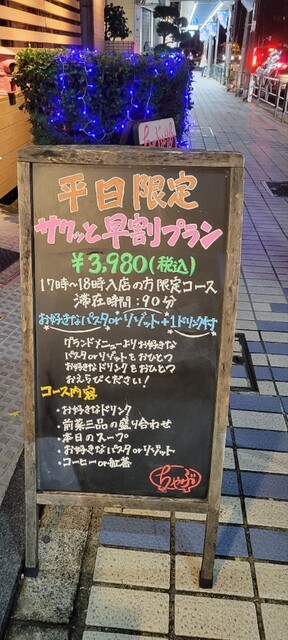 平日限定
サクッと早割プラン
¥3,980(税込)
17時〜18時入店の方限定コース
滞在時間:90分
お好きなパスタorリゾット+1ドリンク付
グランドメニューよりお好きな
パスタorリゾットをおひとつ
お好きなドリンクをおひとつ
おえらびください!
コース内容
・お好きなドリンク
・前菜三品の盛り合わせ
・本日のスープ
・お好きなパスタorリゾット
・コーヒーor紅茶
ちゃぶ